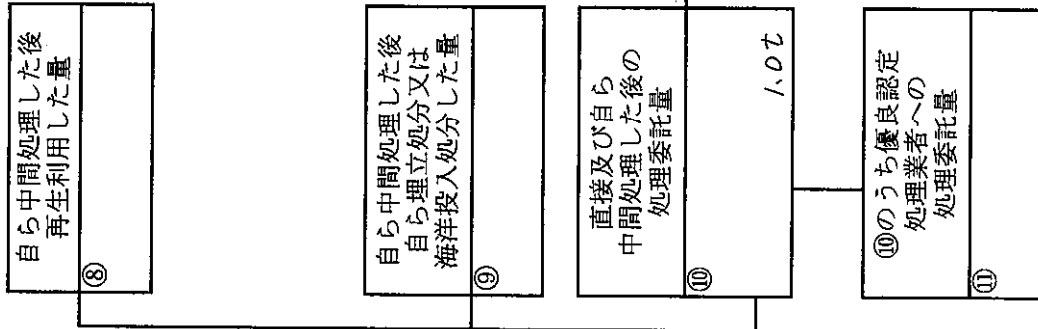 自ら中間処理した後
再生利用した量
⑧
自ら中間処理した後
自ら埋立処分又は
海洋投入処分した量
⑨
直接及び自ら
中間処理した後の
処理委託量
⑩
1.0t
⑩のうち優良認定
処理業者への
処理委託量
⑪